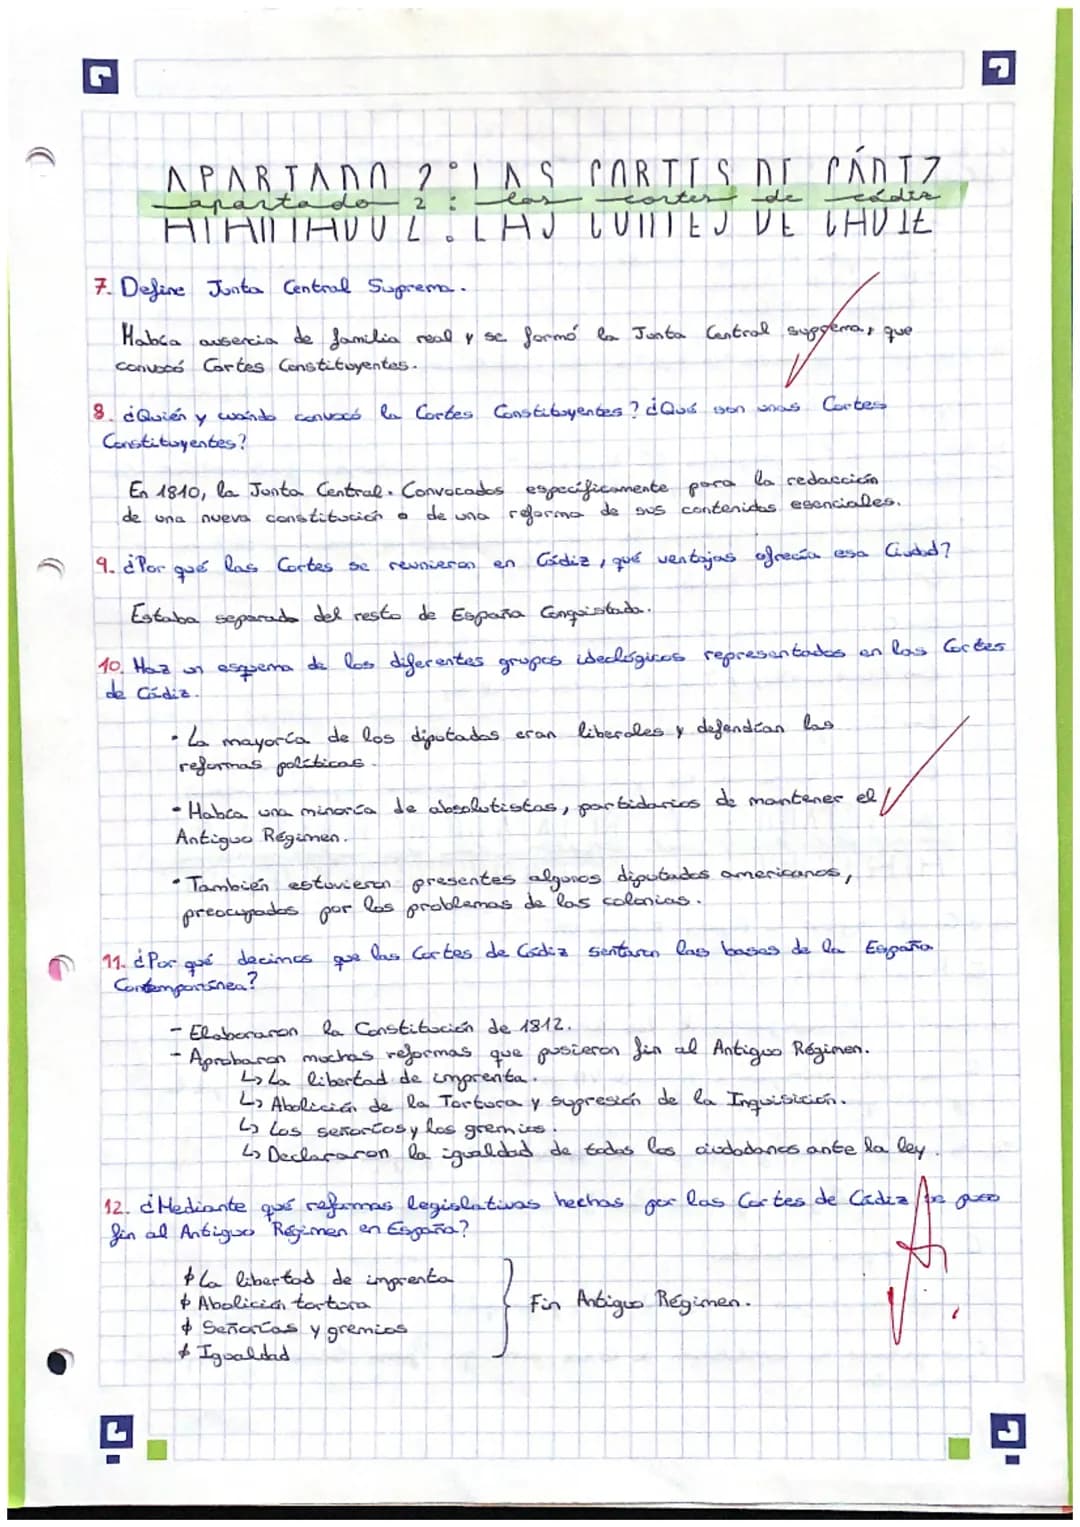 APARTADO 2: LAS CORTES DE CÁDIZ
apartado 2: las cortes de cádiz
7. Define Junta Central Suprema.
Había ausencia de familia real y se formó la Junta Central suprema, que
convocó Cortes Constituyentes.
8. ¿Quién y cuándo convocó la Cortes Constituyentes? ¿Qué son unas Cortes
Constituyentes?
En 1810, la Junta Central. Convocados específicamente para la redacción
de una nueva constitución o de una reforma de sus contenidos esenciales.
9. ¿Por qué las Cortes se reunieron en Cádiz, qué ventajas ofrecía esa Ciudad?
Estaba separado del resto de España Conquistada.
10. Haz un esquema de los diferentes grupos ideológicos representados en las Cortes
de Cádiz.
· La mayoría de los diputados eran liberales y defendían las
reformas políticas.
· Había una minoría de absolutistas, partidarios de mantener el
Antiguo Régimen.
· También estuvieron presentes algunos diputados americanos,
preocupados por los problemas de las colonias.
11. ¿Por qué decimos que las Cortes de Cádiz sentaron las bases de la España
Contemporánea?
- Elaboraron la Constitución de 1812.
- Aprobaron muchas reformas que pusieron fin al Antiguo Régimen.
↳ La libertad de imprenta.
↳ Abolición de la Tortura y supresión de la Inquisición.
↳ Los señoríos y los gremios.
↳ Declararon la igualdad de todos los ciudadanos ante la ley.
12. ¿Mediante qué reformas legislativas hechas por las Cortes de Cádiz se puso
fin al Antiguo Régimen en España?
La libertad de imprenta
Abolición tortura
Señorías y gremios
Igualdad
Fin Antiguo Régimen.